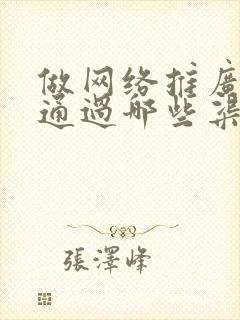 做网络推廣
通過哪些渠
張澤峰